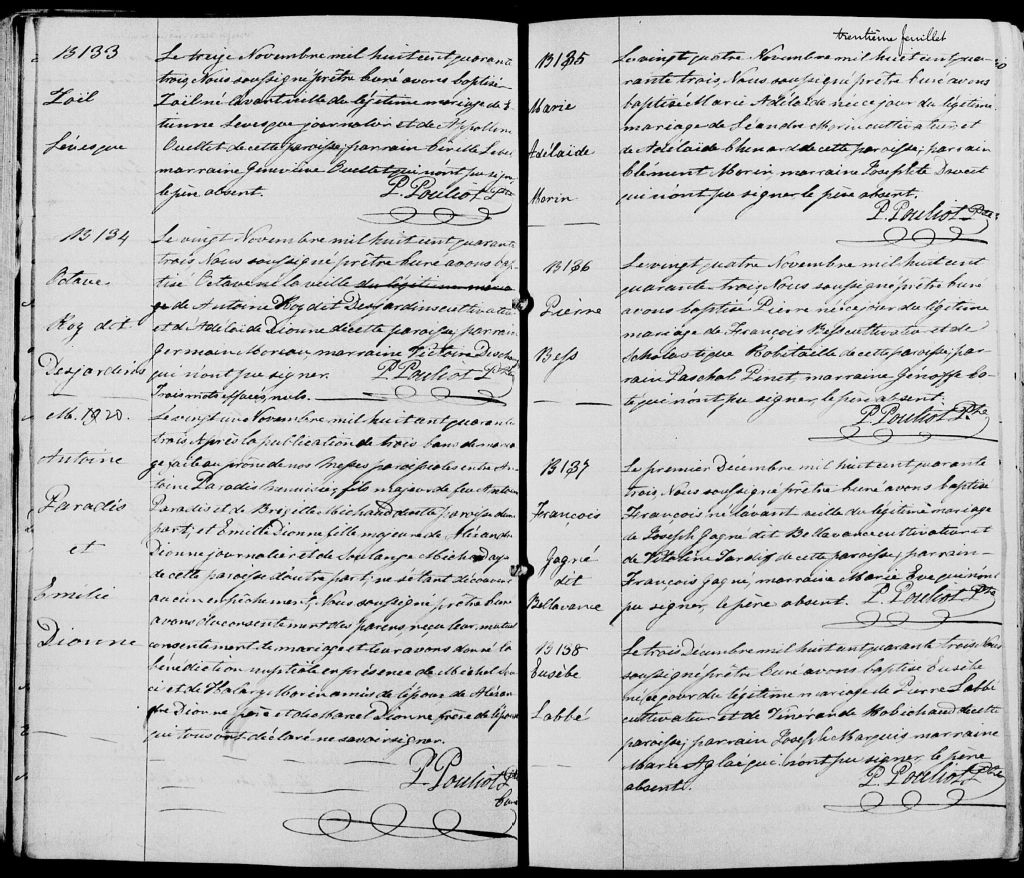 B133
Zoïl
Lévesque
Le treize Novembre mil huit cent quarante
trois, Nous soussigné prêtre Curé avons baptisé
Zoïl né l'avant veille du légitime mariage de E-
tienne Levesque journalier et de Appolline
Ouellet de cette paroisse; parrain
marraine Géneviève Ouellet qui n'ont pu signer,
le père absent. P. Pouliot Ptre
B134
Octave
Roy dit
Desjardins
Le vingt Novembre mil huit cent quarante
trois Nous soussigné prêtre Curé avons bap-
tisé Octave né la veille du légitime maria-
ge de Antoine Roy dit Desjardins cultivateur
et d'Adélaide Dionne de cette paroisse, parrain
Germain Moreau, marraine Victoire
qui n'ont pu signer. P. Pouliot Ptre
Trois mots nuls.
M. 20.
Antoine
Paradis
et
Emilie
Dionne
Le vingt un Novembre mil huit cent quarante
trois, Après la publication de trois bans de maria-
ge faite au prône de nos Messes paroissiales entre An-
toine Paradis menuisier, fils majeur de feu Antoine
Paradis et de Brigitte Michaud de cette paroisse d'une
part; et Emilie Dionne fille mineure de Aléxandre
Dionne journalier et de Soulange Michaud aussi
de cette paroisse d'autre part; ne s'étant découvert
aucun empêchement, Nous soussigné prêtre Curé
avons du consentement des parens, reçu leur mutuel
consentement de mariage et leur avons donné la
bénédiction nuptiale en présence de Michel
et de Morin amis de l'époux de Aléxan-
dre Dionne père et de Marcel Dionne frère de l'épouse
qui tous ont déclaré ne savoir signer.
P. Pouliot Ptre
Curé
trentième feuillet
B135
Marie
Adélaide
Morin
Le vingt quatre Novembre mil huit cent qua-
rante trois, Nous soussigné prêtre Curé avons
baptisé Marie Adélaïde née ce jour du légitime
mariage de Léandre Morin cultivateur et
de Adélaide Chenard de cette paroisse, parrain
Clément Morin, marraine Josephte
qui n'ont pu signer, le père absent.
P. Pouliot Ptre
B136
Pierre
Bess
Le vingt quatre Novembre mil huit cent
quarante trois, Nous soussigné prêtre Curé
avons baptisé Pierre né ce jour du légitime
mariage de François Bess cultivateur et de
Scholastique Robetaille de cette paroisse; par-
rain Paschal Pinet, marraine
qui n'ont pu signer, le père absent.
P. Pouliot Ptre
B137
François
Gagné
dit
Bellavance
Le premier Décembre mil huit cent quarante
trois, Nous soussigné prêtre Curé avons baptisé
François né l'avant veille du légitime mariage
de Joseph Gagné dit Bellavance cultivateur et
de Vitaline Tardif de cette paroisse, parrain
François Gagné, marraine Marie Eve qui n'ont
pu signer, le père absent. P. Pouliot Ptre
B138
Eusèbe
Labbé
Le trois Décembre mil huit cent quarante trois Nous
soussigné prêtre Curé avons baptisé Eusèbe
né ce jour du légitime mariage de Pierre Labbé
cultivateur et de Vénérande Robichaud de cette
paroisse, parrain Joseph Marquis marraine
Marie Aglaé qui n'ont pu signer, le père
absent. P. Pouliot Ptre